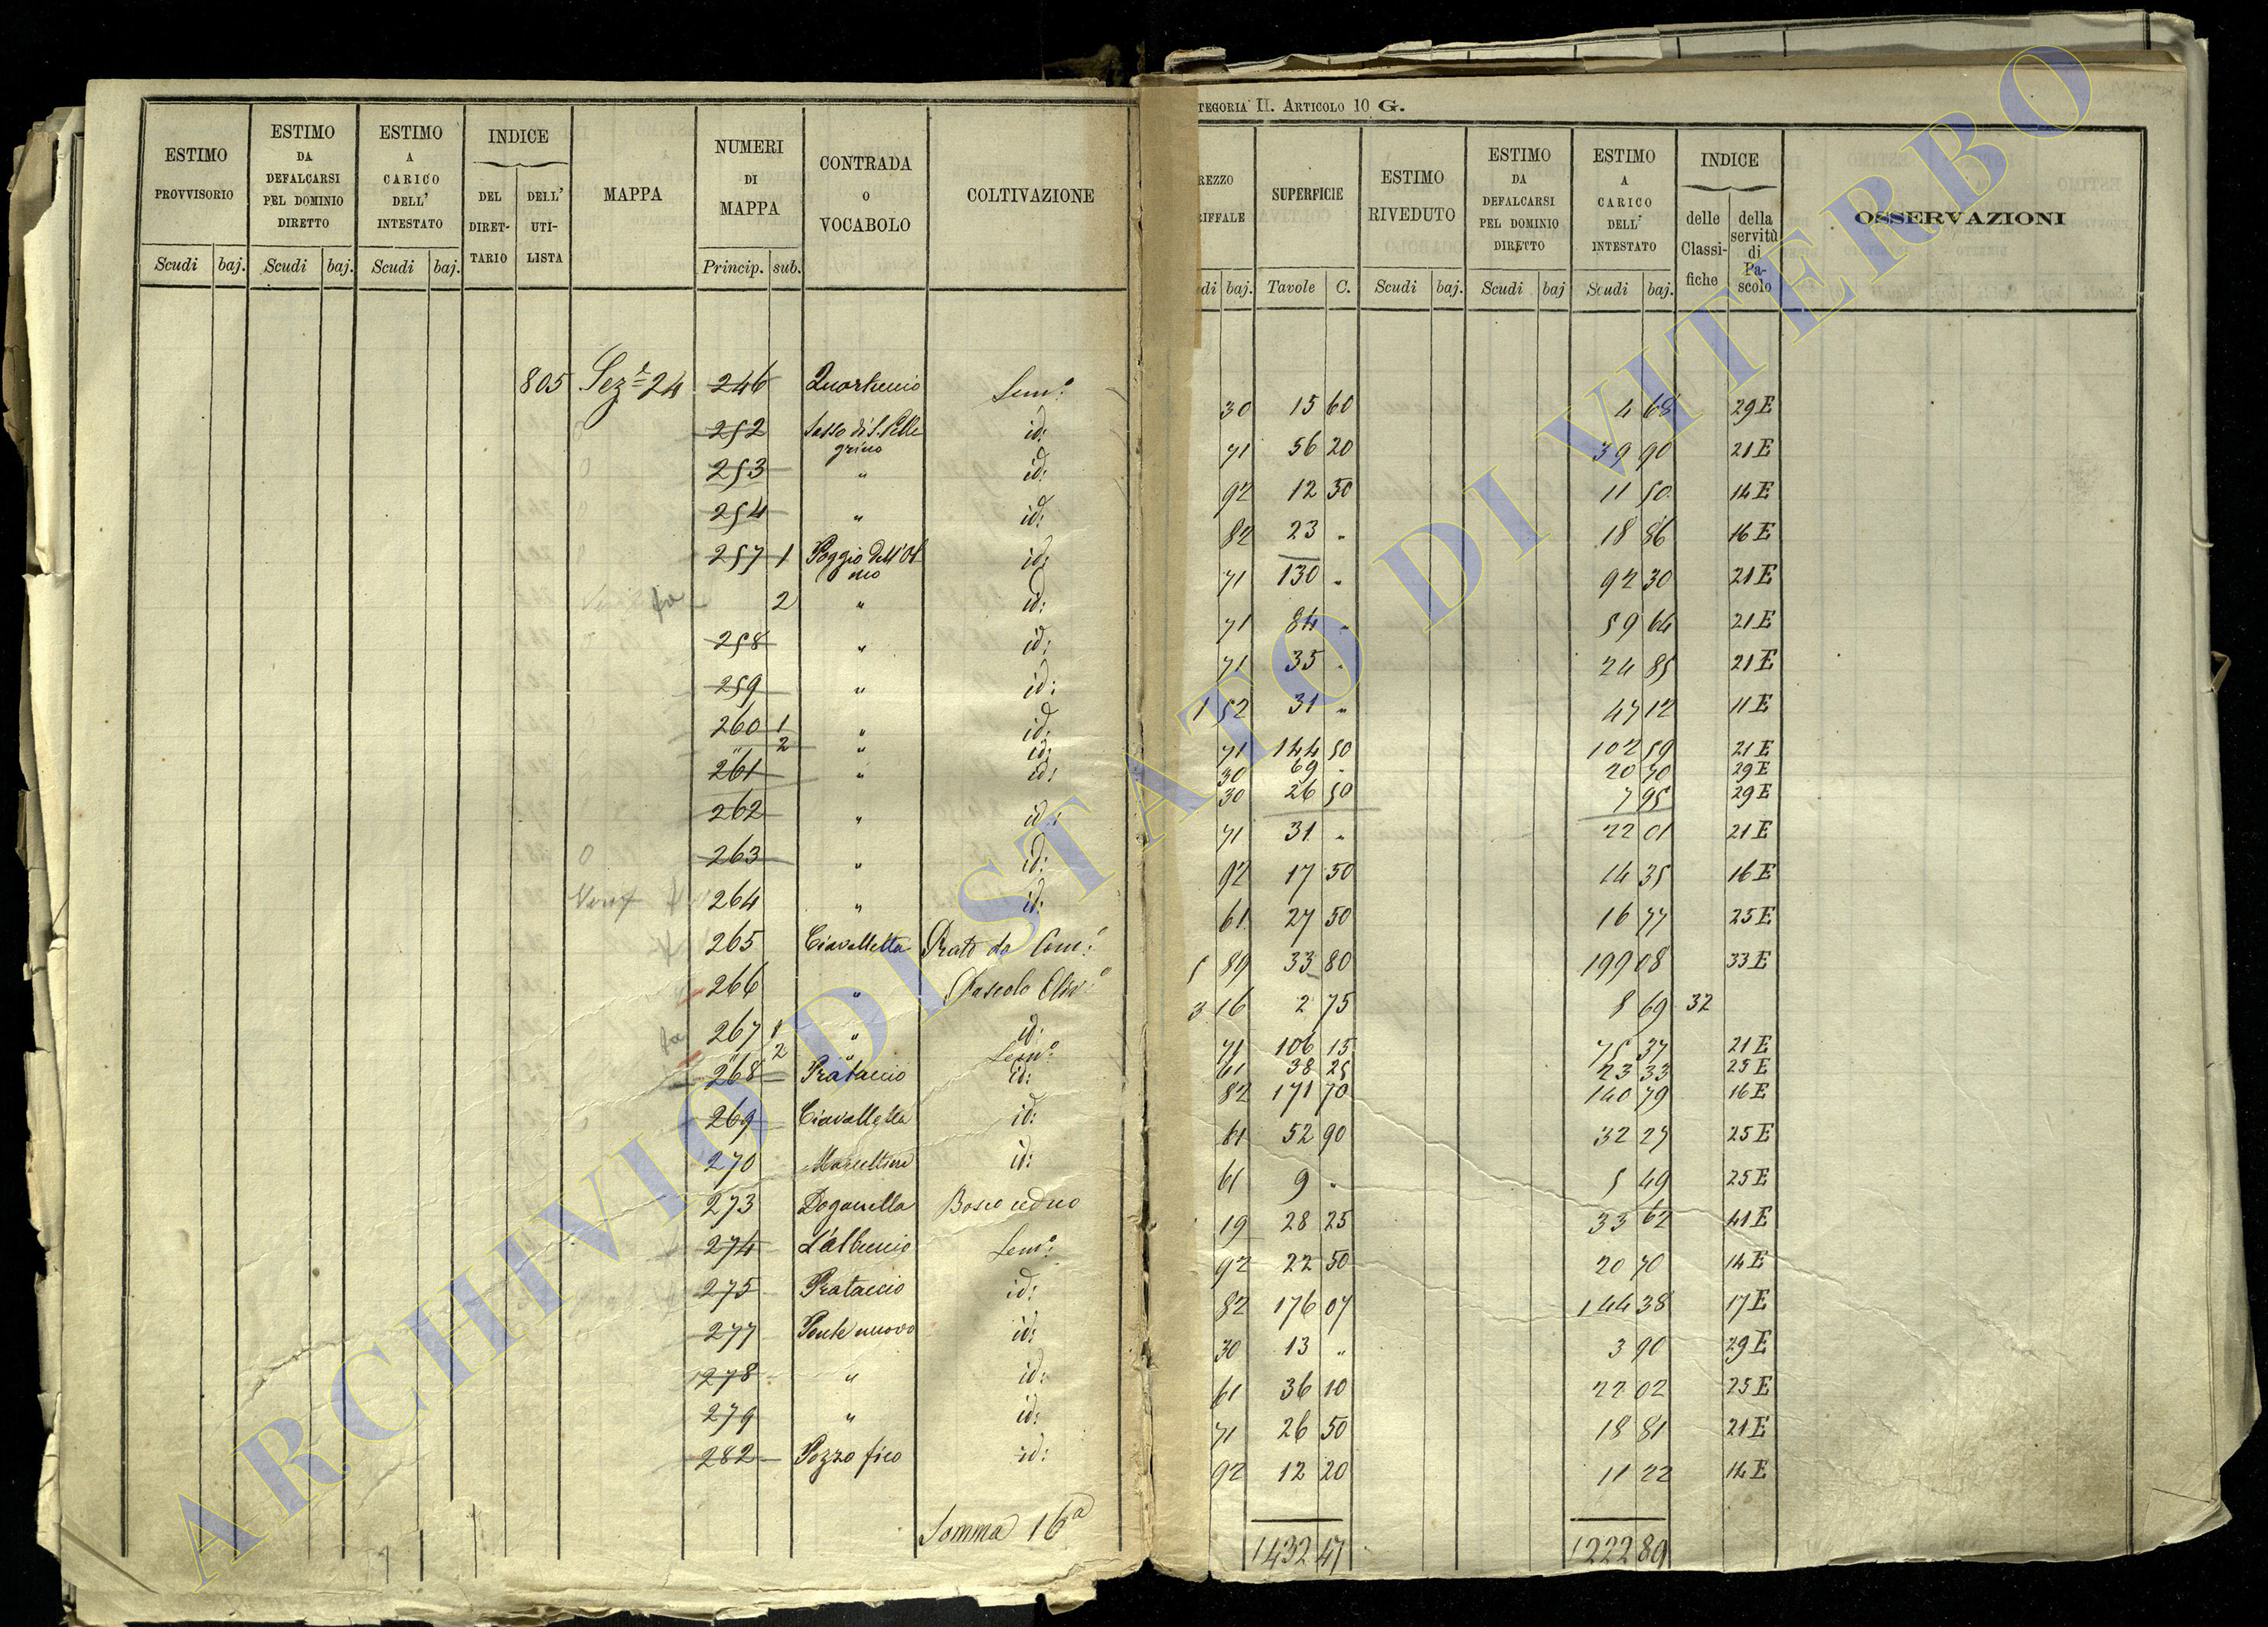 TEGORIA II. ARTICOLO 10 G.
ESTIMO PROVVISORIO
ESTIMO DA DEFALCARSI PEL DOMINIO DIRETTO
ESTIMO A CARICO DELL' INTESTATO
INDICE
DEL DIRETTARIO
DELL' UTILISTA
MAPPA
NUMERI DI MAPPA
CONTRADA O VOCABOLO
COLTIVAZIONE
Scudi baj. Scudi baj. Scudi baj. Princip. sub.
805 Sez.e 24 246 Quartuccio Sem.o
252 Sasso di S. Pelle
grino id:
253 " id:
254 " id:
257 1 Poggio dell'Ol
mo id:
2 " id:
258 " id:
259 " id:
260 1 " id:
" 2 " id:
261 " id:
262 " id:
263 " id:
264 " id:
265 Ciavalletta Prato da
266 " Pascolo Oliv.o
267 1 " id:
" 2 " Sem.o
268 Prataccio id:
269 Ciavalletta id:
270 id:
273 Doganella Bosco ceduo
274 Sem.o
275 Prataccio id:
277 Ponte nuovo id:
278 " id:
279 " id:
282 Pozzo fico id:
Somma 16a
REZZO
RIFFALE
SUPERFICIE
ESTIMO RIVEDUTO
ESTIMO DA DEFALCARSI PEL DOMINIO DIRETTO
ESTIMO A CARICO DELL' INTESTATO
INDICE
delle Classifiche
della servitù di Pascolo
OSSERVAZIONI
di baj. Tavole C. Scudi baj. Scudi baj Scudi baj.
30 15 60 4 68 29 E
71 56 20 39 90 21 E
92 12 50 11 50 14 E
82 23 " 18 86 16 E
71 130 " 92 30 21 E
71 84 " 59 64 21 E
71 35 " 24 85 21 E
1 52 31 " 47 12 11 E
71 144 50 102 59 21 E
30 69 " 20 70 29 E
30 26 50 7 95 29 E
71 31 " 22 01 21 E
92 17 50 14 35 16 E
61 27 50 16 77 25 E
5 89 33 80 199 08 33 E
3 16 2 75 8 69 32
71 106 15 75 37 21 E
61 38 25 23 33 25 E
82 171 70 140 79 16 E
61 52 90 32 27 25 E
61 9 " 5 49 25 E
19 28 25 33 62 41 E
92 22 50 20 70 14 E
82 176 07 144 38 17 E
30 13 " 3 90 29 E
61 36 10 22 02 25 E
71 26 50 18 81 21 E
92 12 20 11 22 14 E
1432 47 1222 89
ARCHIVIO DI STATO DI VITERBO